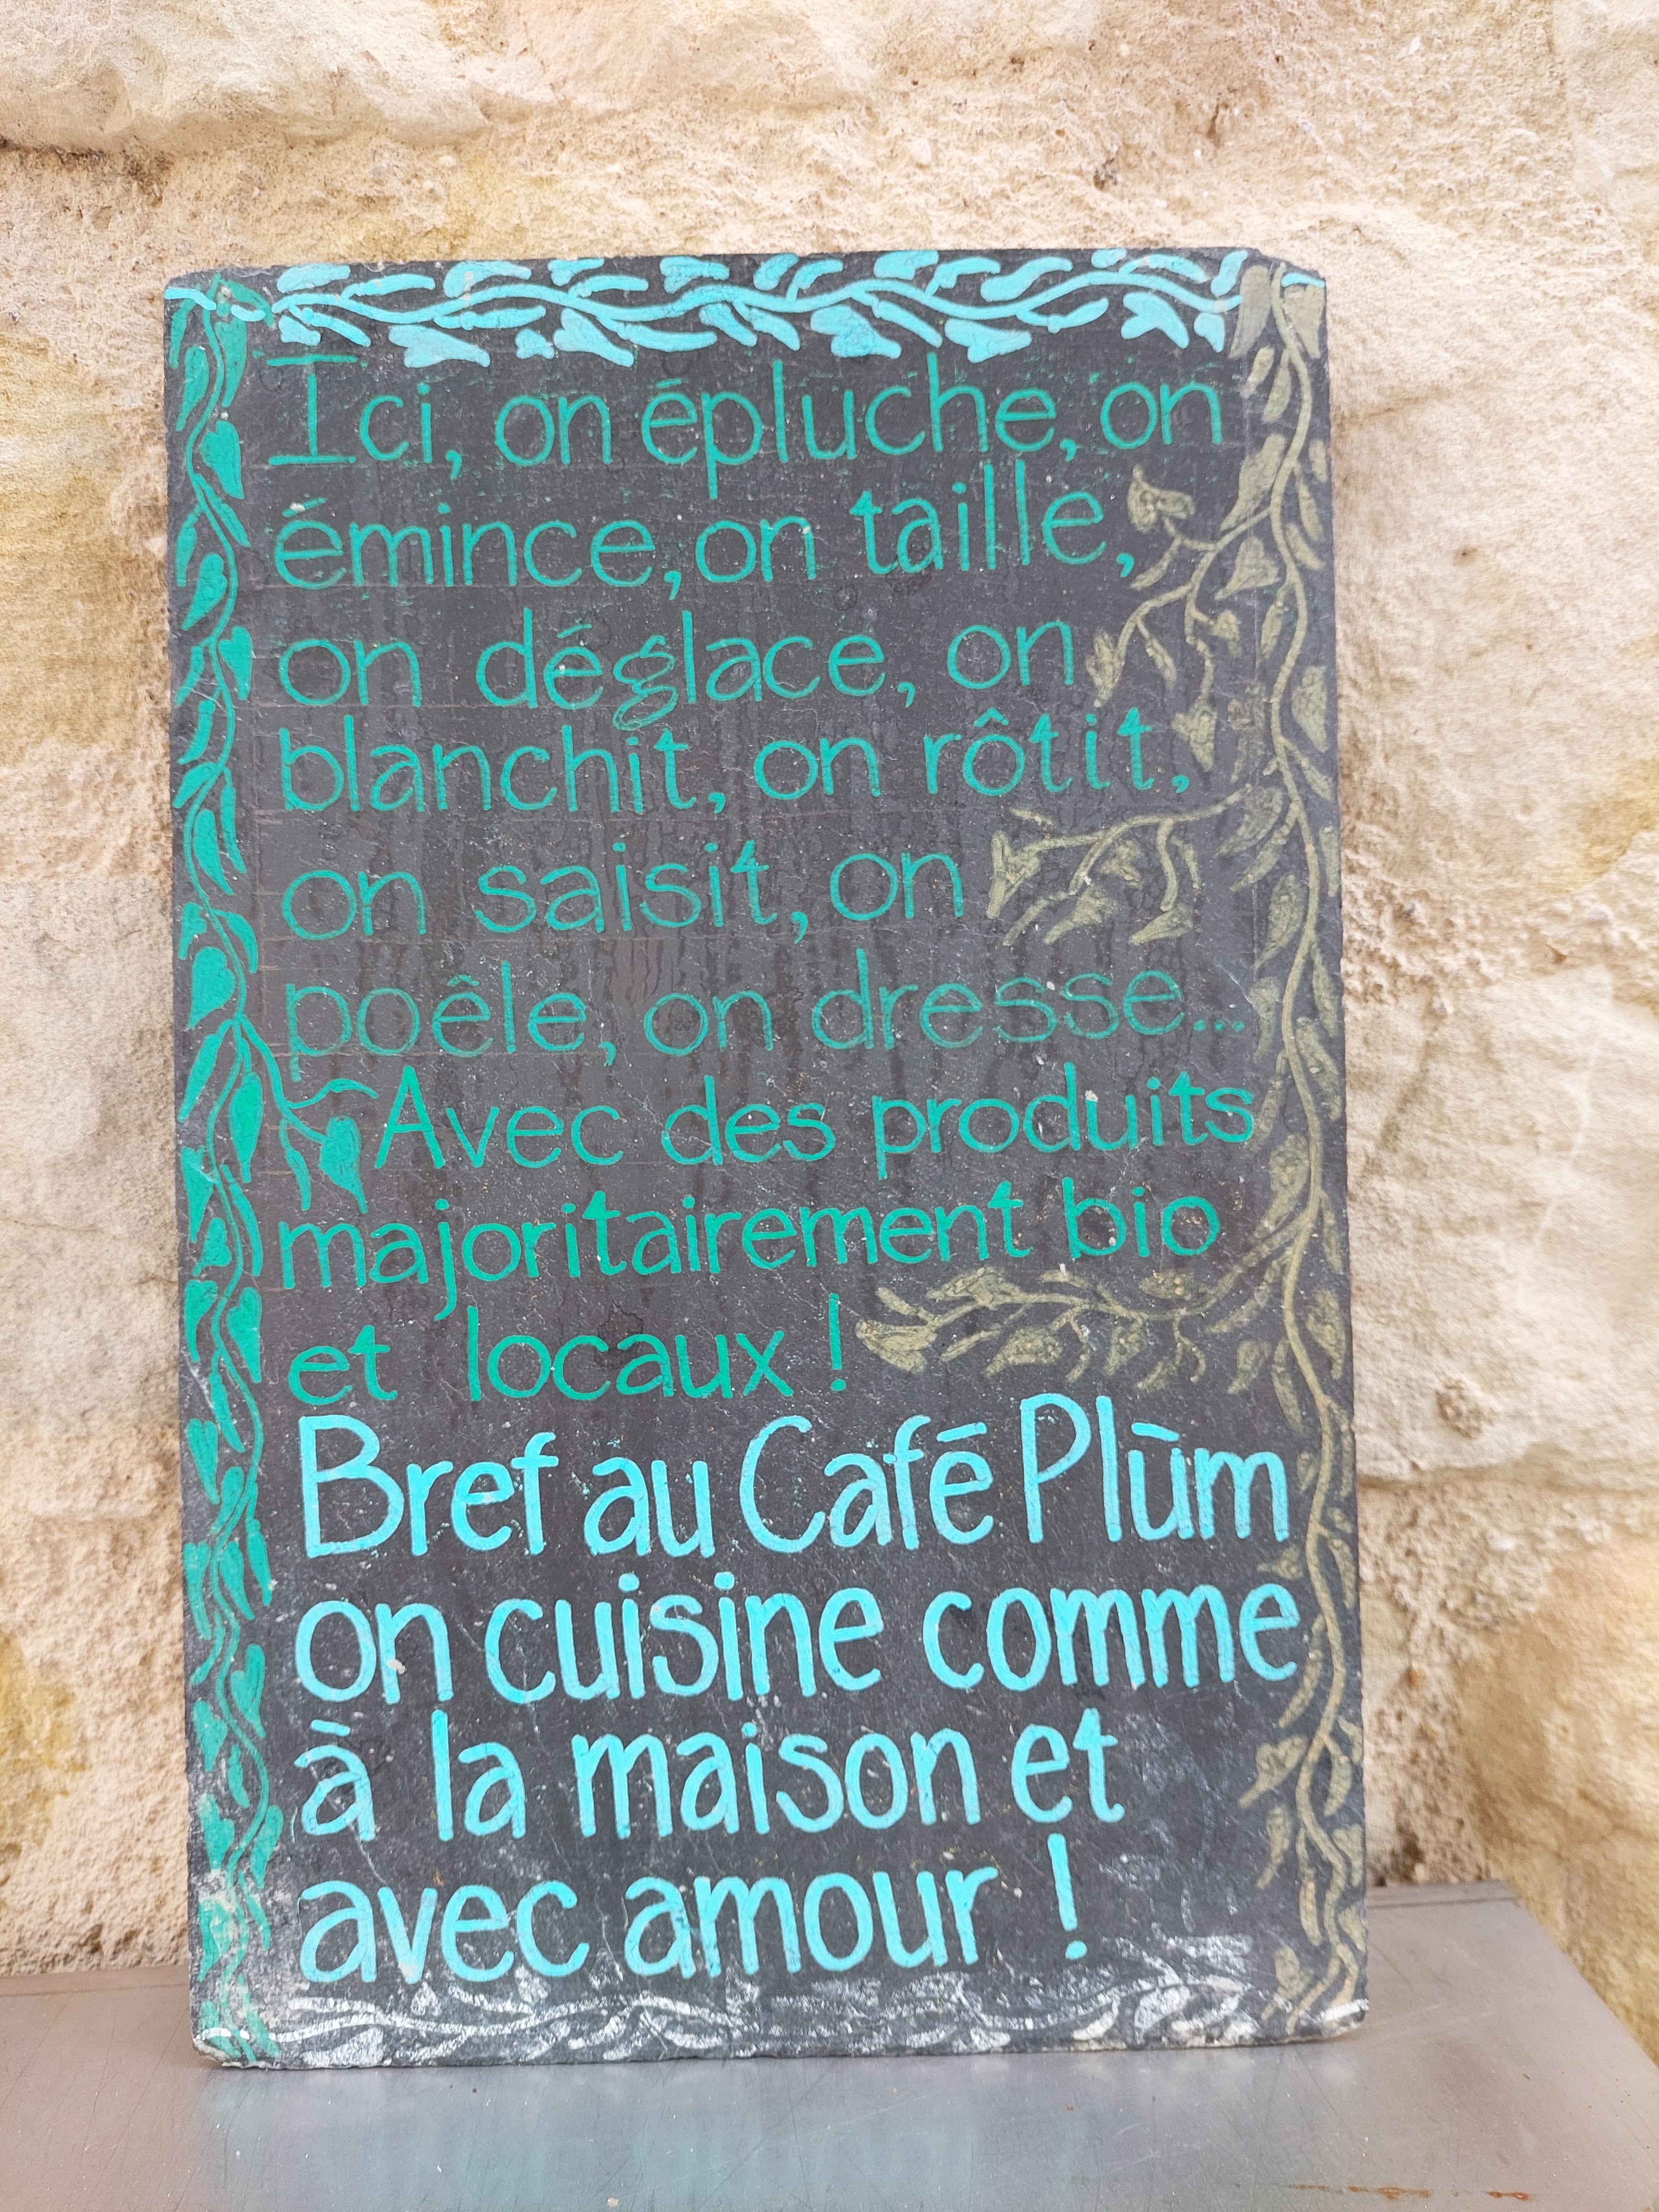 Ici, on épluche, on
émince, on taille,
on déglace, on
blanchit, on rôtit,
on saisit, on
poêle, on dresse...
Avec des produits
majoritairement bio
et locaux !
Bref au Café Plùm
on cuisine comme
à la maison et
avec amour !